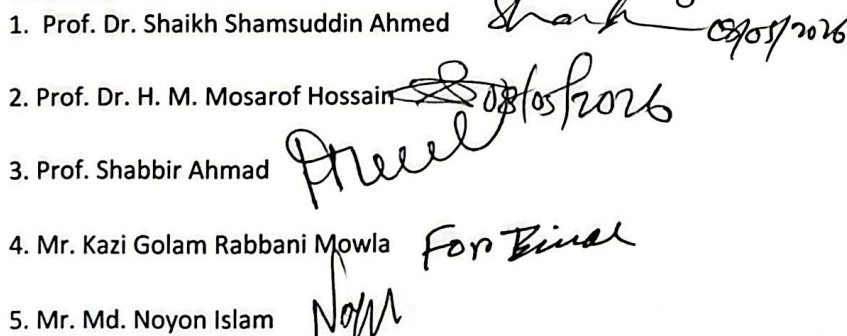 1. Prof. Dr. Shaikh Shamsuddin Ahmed 08/05/2026
2. Prof. Dr. H. M. Mosarof Hossain 08/05/2026
3. Prof. Shabbir Ahmad
4. Mr. Kazi Golam Rabbani Mowla For
5. Mr. Md. Noyon Islam Noyn